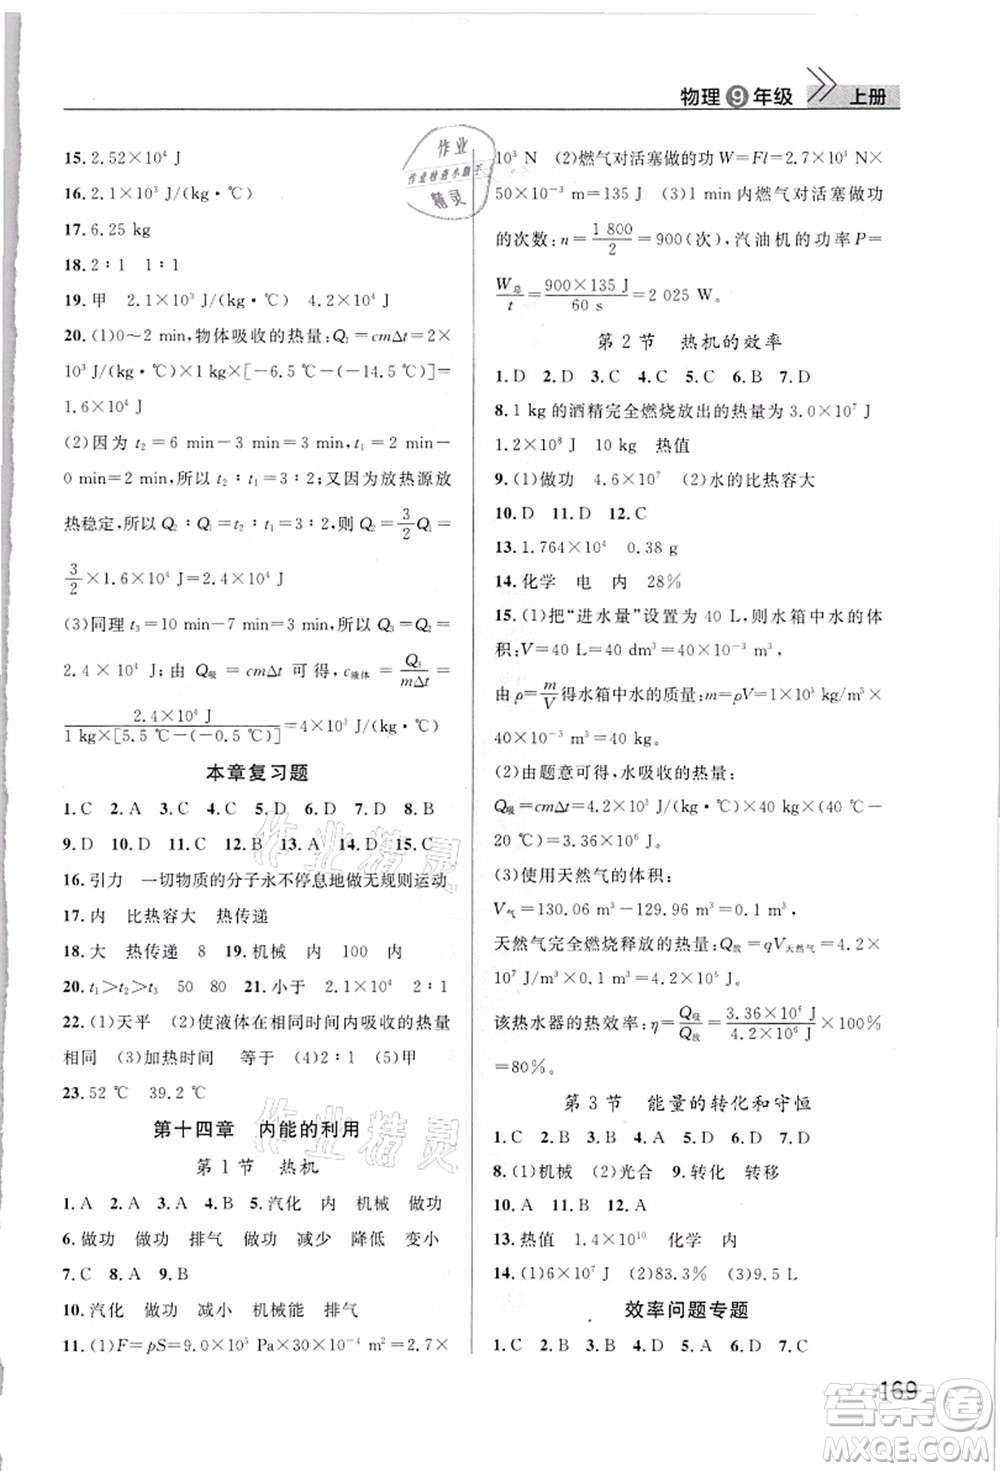 物理9年级 上册
15. 2.52×10⁴ J
16. 2.1×10³ J/(kg·℃)
17. 6.25 kg
18. 2∶1 1∶1
19. 甲 2.1×10³ J/(kg·℃) 4.2×10⁴
20. (1)0～2 min,物体吸收的热量:Q₁=cmΔt=2×
10³ J/(kg·℃)×1 kg×[-6.5 ℃-(-14.5 ℃)]=
1.6×10⁴ J
(2)因为 t₂=6 min-3 min=3 min,t₁=2 min-
0=2 min,所以 t₂∶t₁=3∶2;又因为放热源放
热稳定,所以 Q₂∶Q₁=t₂∶t₁=3∶2,则 Q₂=3/2 Q₁=
3/2×1.6×10⁴ J=2.4×10⁴ J
(3)同理 t₃=10 min-7 min=3 min,所以 Q₃=Q₂=
2.4×10⁴ J;由 Q吸=cmΔt 可得,c液体=Q₃/mΔt=
2.4×10⁴ J/1 kg×[5.5 ℃-(-0.5 ℃)]=4×10³ J/(kg·℃)
本章复习题
1. C 2. A 3. C 4. C 5. C 6. D 7. D 8. B
9. D 10. D 11. C 12. B 13. A 14. D 15. C
16. 引力 一切物质的分子永不停息地做无规则运动
17. 内 比热容大 热传递
18. 大 热传递 8 19. 机械 内 100 内
20. t₁>t₂>t₃ 50 80 21. 小于 2.1×10⁴ 2∶1
22. (1)天平 (2)使液体在相同时间内吸收的热量
相同 (3)加热时间 等于 (4)2∶1 (5)甲
23. 52 ℃ 39.2 ℃
第十四章 内能的利用
第1节 热机
1. A 2. A 3. A 4. B 5. 汽化 内 机械 做功
6. 做功 做功 排气 做功 减少 降低 变小
7. C 8. A 9. B
10. 汽化 做功 减小 机械能 排气
11. (1)F=pS=9.0×10⁵ Pa×30×10⁻⁴ m²=2.7×
10³ N (2)燃气对活塞做的功 W=Fl=2.7×10³ N×
50×10⁻³ m=135 J (3)1 min 内燃气对活塞做功
的次数:n=1 800/2=900(次),汽油机的功率 P=
W总/t=900×135 J/60 s=2 025 W.
第2节 热机的效率
1. D 2. D 3. C 4. C 5. C 6. B 7. D
8. 1 kg的酒精完全燃烧放出的热量为 3.0×10⁷ J
1.2×10⁸ J 10 kg 热值
9. (1)做功 4.6×10⁷ (2)水的比热容大
10. D 11. D 12. C
13. 1.764×10⁴ 0.38 g
14. 化学 电 内 28%
15. (1)把“进水量”设置为 40 L,则水箱中水的体
积:V=40 L=40 dm³=40×10⁻³ m³;
由 ρ=m/V得水箱中水的质量:m=ρV=1×10³×
40×10⁻³ m³=40 kg.
(2)由题意可得,水吸收的热量:
Q吸=cmΔt=4.2×10³ J/(kg·℃)×40 kg×20 ℃
=3.36×10⁶ J.
(3)使用天然气的体积:
V气=130.06 m³-129.96 m³=0.1 m³,
天然气完全燃烧释放的热量:Q放=qV天然气=4.2×
10⁷ J/m³×0.1 m³=4.2×10⁶ J,
该热水器的热效率:η=Q吸/Q放=3.36×10⁶ J/4.2×10⁶ J×100%
=80%.
第3节 能量的转化和守恒
1. C 2. D 3. D 4. C 5. A 6. B 7. C
8. (1)机械 (2)光合 9. 转化 转移
10. A 11. B 12. A
13. 热值 1.4×10¹⁰ 化学 内
14. (1)6×10⁷ J (2)83.3% (3)9.5 L
效率问题专题
1. C 2. D 3. C 4. B 5. D 7. C
169
作业
作业精灵小助手
精灵
作业精灵
作业精灵
答案圈
MXQE.COM